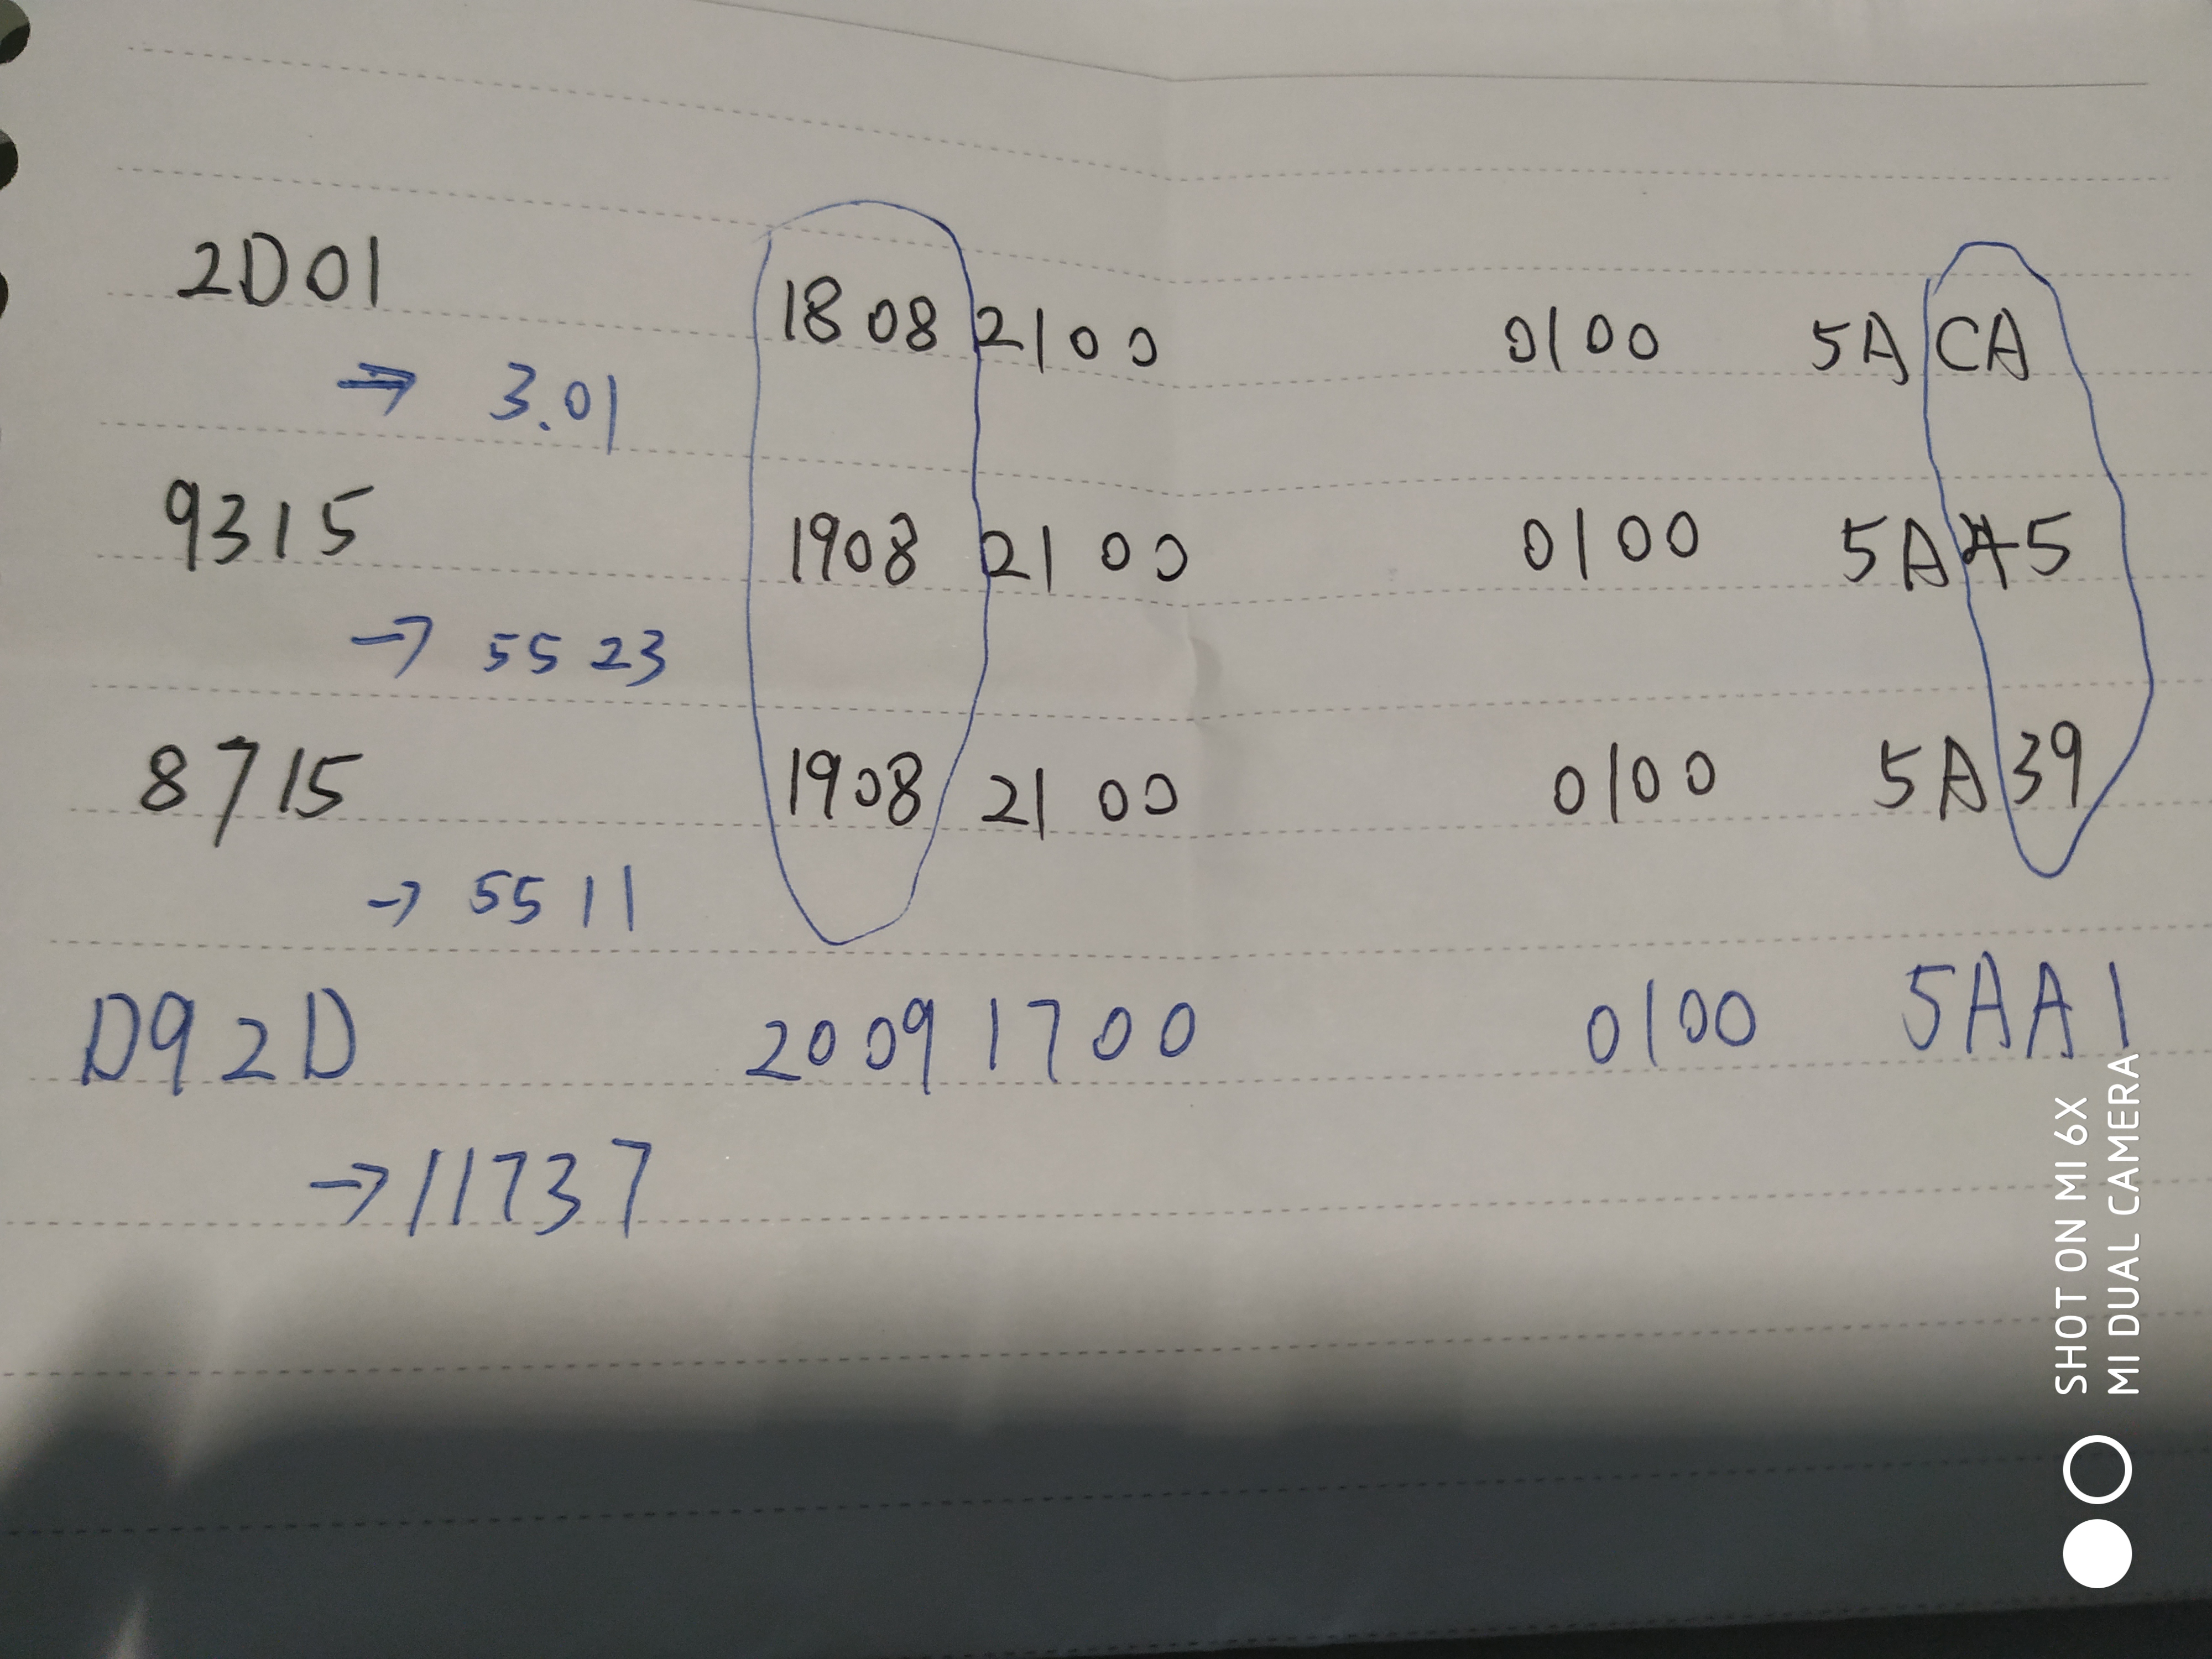 2D01 1808 2100 0100 5A CA
→ 3.01
9315 1908 2100 0100 5A 45
→ 5523
8715 1908 2100 0100 5A 39
→ 5511
D92D 2009 1700 0100 5AA1
→ 11737
SHOT ON MI 6X
MI DUAL CAMERA